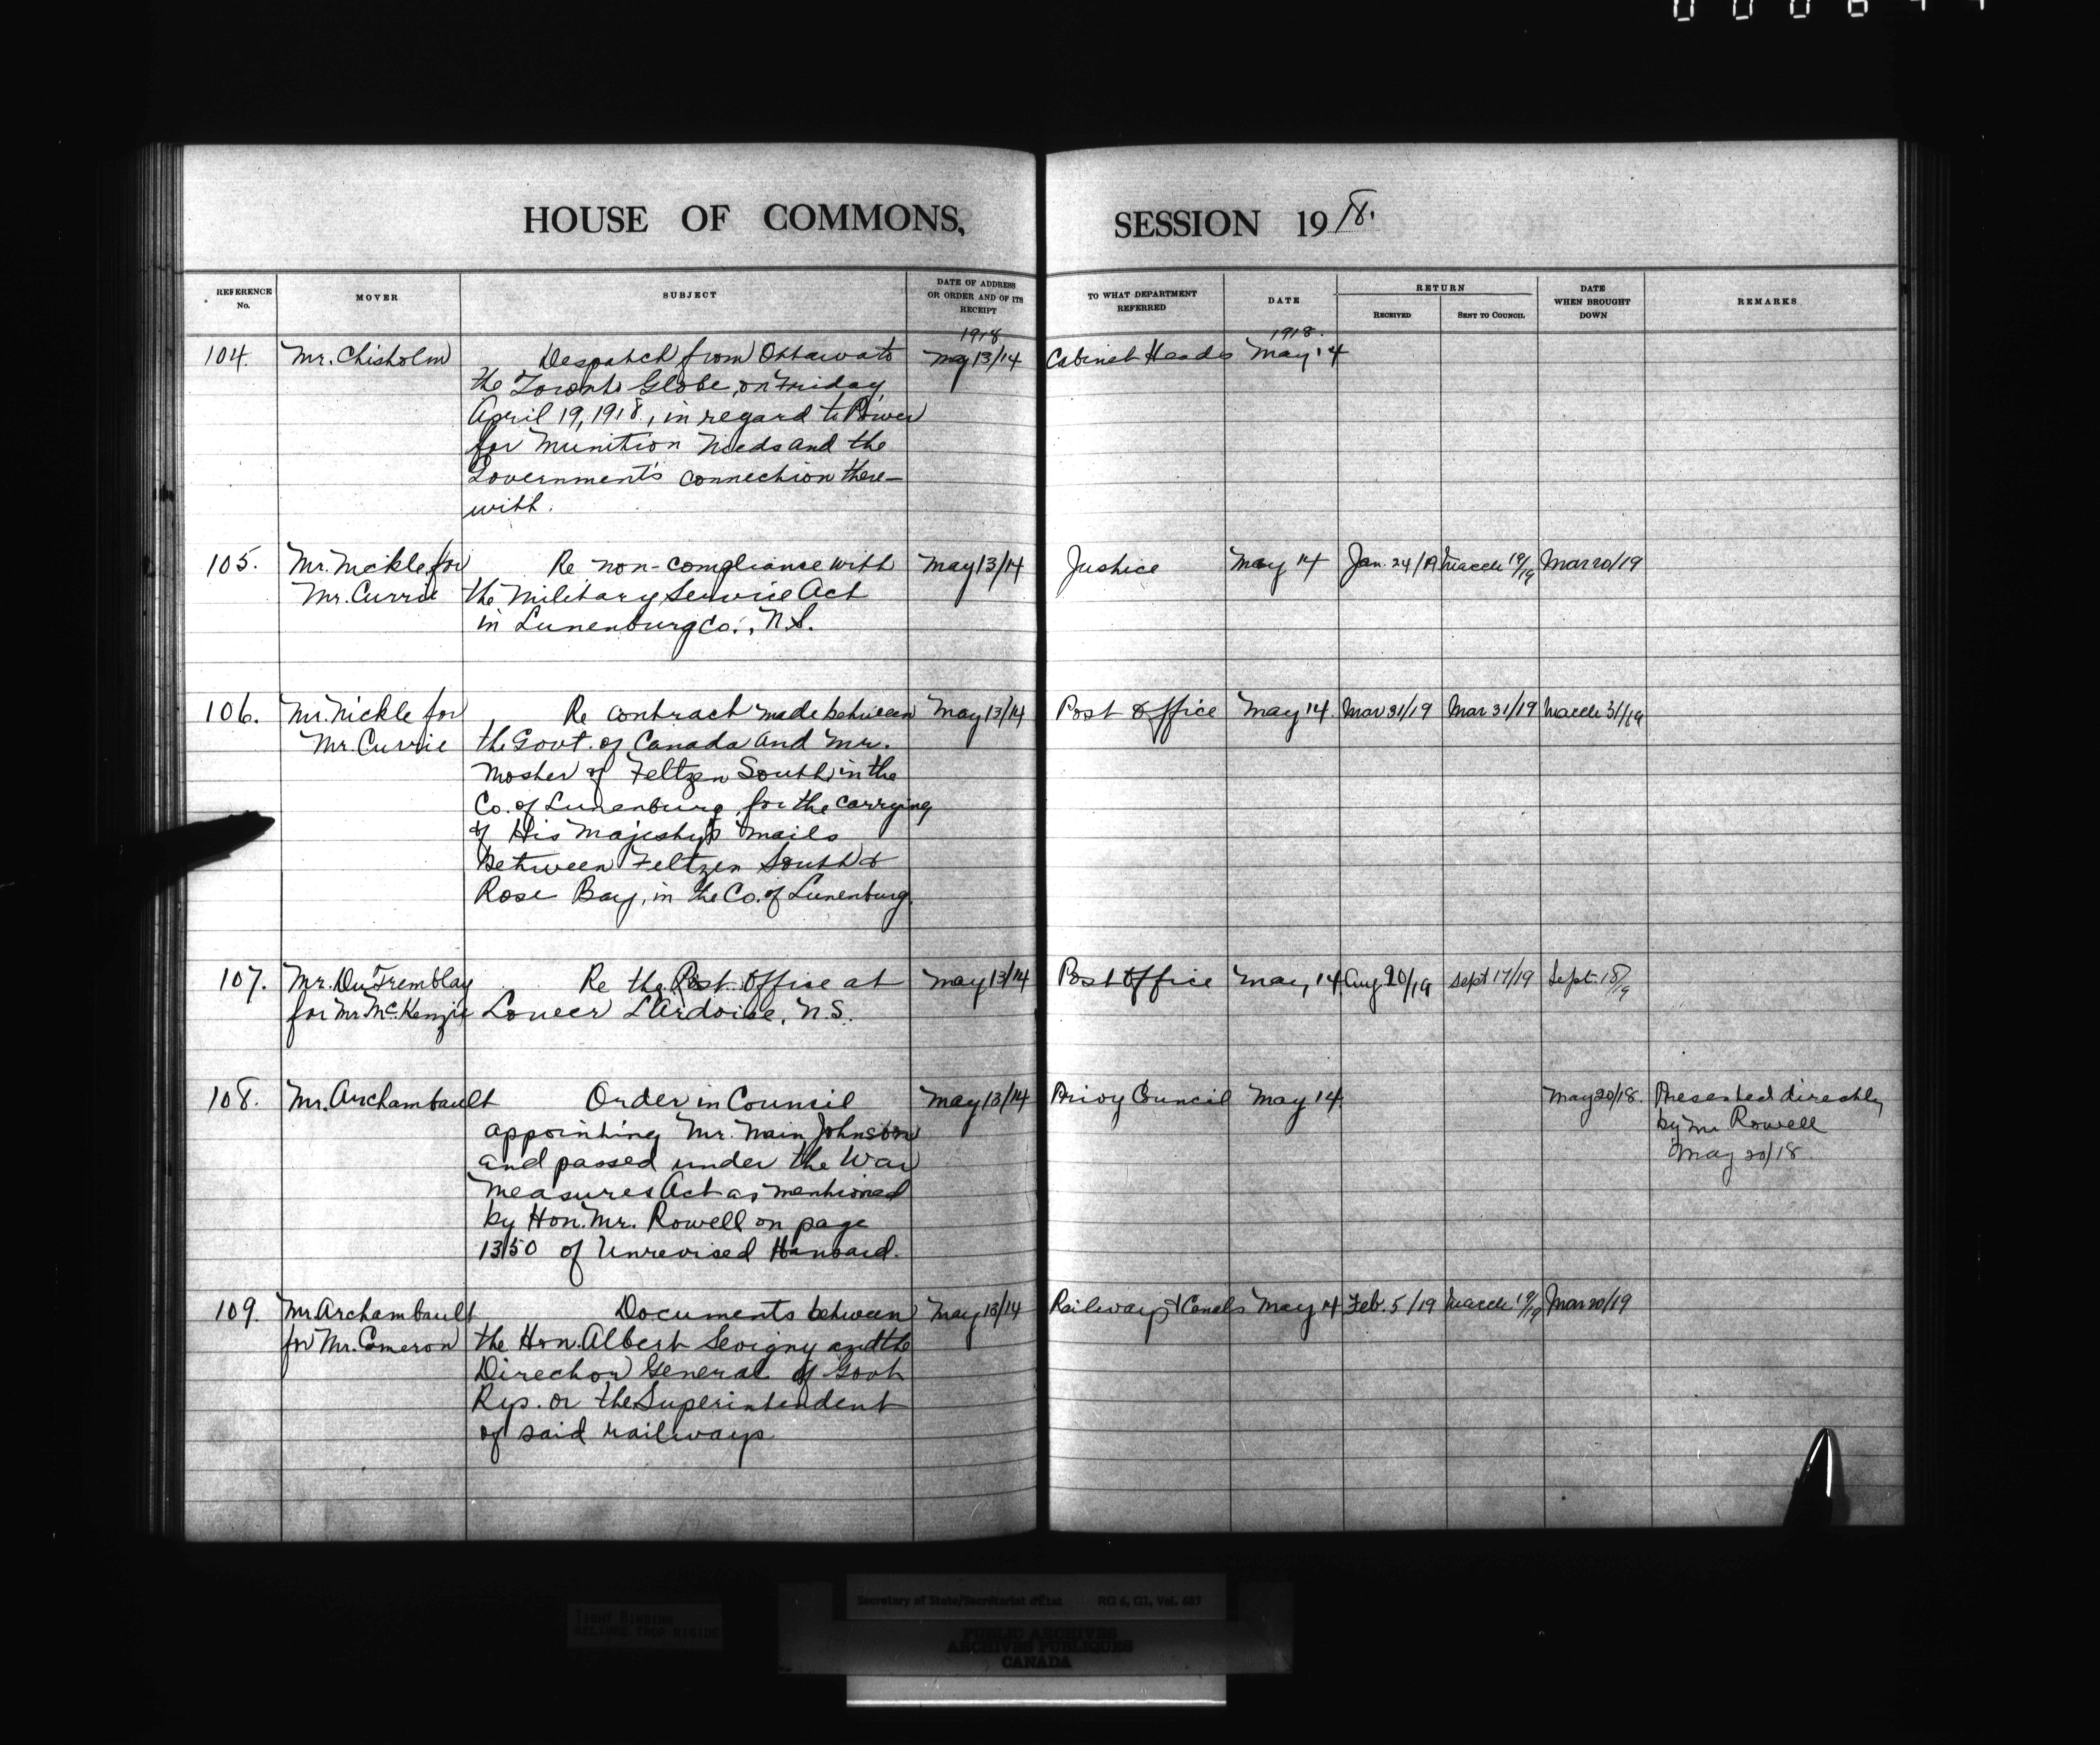 HOUSE OF COMMONS, SESSION 1918.
REFERENCE No. MOVER SUBJECT DATE OF ADDRESS OR ORDER AND OF ITS RECEIPT TO WHAT DEPARTMENT REFERRED DATE RETURN RECEIVED SENT TO COUNCIL DATE WHEN BROUGHT DOWN REMARKS
1918 1918.
104. Mr. Chisholm Despatch from Ottawa to May 13/14 Cabinet Heads May 14
the Toronto Globe, on Friday,
April 19, 1918, in regard to Power
for Munition Needs and the
Government's connection there-
with.
105. Mr. Nickle for Re non-compliance with May 13/14 Justice May 14 Jan. 24/19 March 19/19 Mar 20/19
Mr. Currie the Military Service Act
in Lunenburg Co., N.S.
106. Mr. Nickle for Re contract made between May 13/14 Post Office May 14. Mar 31/19 Mar 31/19 March 31/19
Mr. Currie the Govt. of Canada and Mr.
Mosher of Feltzen South in the
Co. of Lunenburg, for the carrying
of His Majesty's Mails
between Feltzen South &
Rose Bay, in the Co. of Lunenburg.
107. Mr. Du Tremblay Re the Post Office at May 13/14 Post Office May 14 Aug. 20/19 Sept 17/19 Sept. 18/19
for Mr. McKenzie Lower L'Ardoise, N.S.
108. Mr. Archambault Order in Council May 13/14 Privy Council May 14. May 20/18. Presented directly
appointing Mr. Main Johnson by Mr Rowell
and passed under the War May 20/18.
Measures Act as mentioned
by Hon. Mr. Rowell on page
1350 of Unrevised Hansard.
109. Mr Archambault Documents between May 13/14 Railways & Canals May 14 Feb. 5/19 March 19/19 Mar 20/19
for Mr. Cameron the Hon. Albert Sevigny and the
Director General of Govt
Rys. or the Superintendent
of said railways
TIGHT BINDING
RELIURE TROP RIGIDE
Secretary of State/Secrétariat d'État RG 6, G1, Vol. 683
PUBLIC ARCHIVES
ARCHIVES PUBLIQUES
CANADA